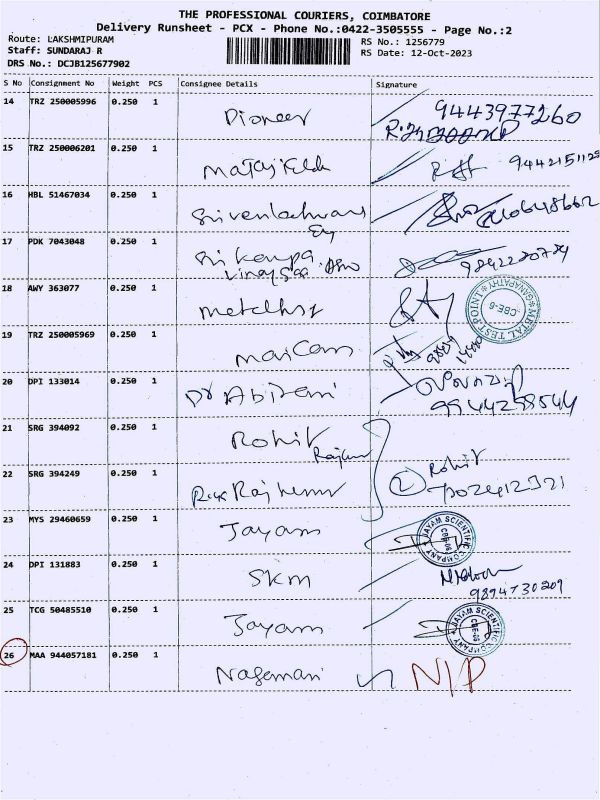 THE PROFESSIONAL COURIERS, COIMBATORE
Delivery Runsheet - PCX - Phone No.:0422-3505555 - Page No.:2
Route: LAKSHMIPURAM
RS No.: 1256779
Staff: SUNDARAJ R
RS Date: 12-Oct-2023
DRS No.: DCJB125677902
S No Consignment No Weight PCS Consignee Details Signature
14 TRZ 250005996 0.250 1 Pioneer 9443977260
15 TRZ 250006201 0.250 1
16 HBL 51467034 0.250 1 Srivenkateswara
17 PDK 7043048 0.250 1 Sri Karupa
18 AWY 363077 0.250 1 METAL TEST POINT GANAPATHY CBE-6
19 TRZ 250005969 0.250 1 Maicam
20 DPI 133014 0.250 1 Dr Abirami
21 SRG 394092 0.250 1 Rohit Rajkumar
22 SRG 394249 0.250 1 Rajkumar 2 Rohit
23 MYS 29460659 0.250 1 Jayam JAYAM SCIENTIFIC COMPANY
24 DPI 131883 0.250 1 SKM 9894730209
25 TCG 50485510 0.250 1 Jayam JAYAM SCIENTIFIC COMPANY
26 MAA 944057181 0.250 1 Nagamani N/P